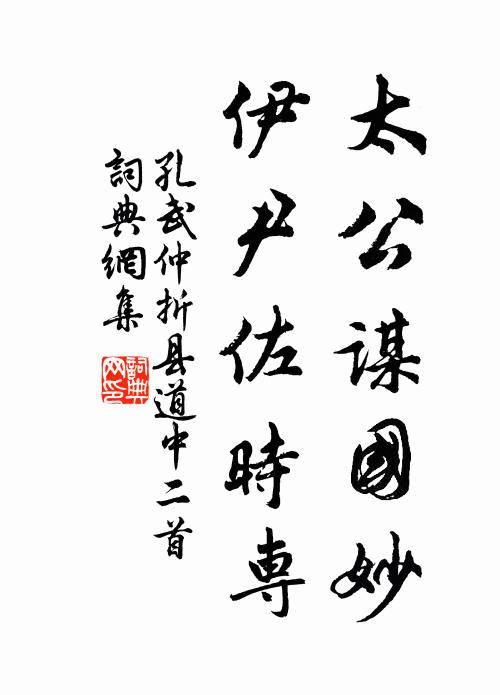 太公謀國妙
伊尹佐時専
孔武仲折县道中二首
詞典網集
詞典网印